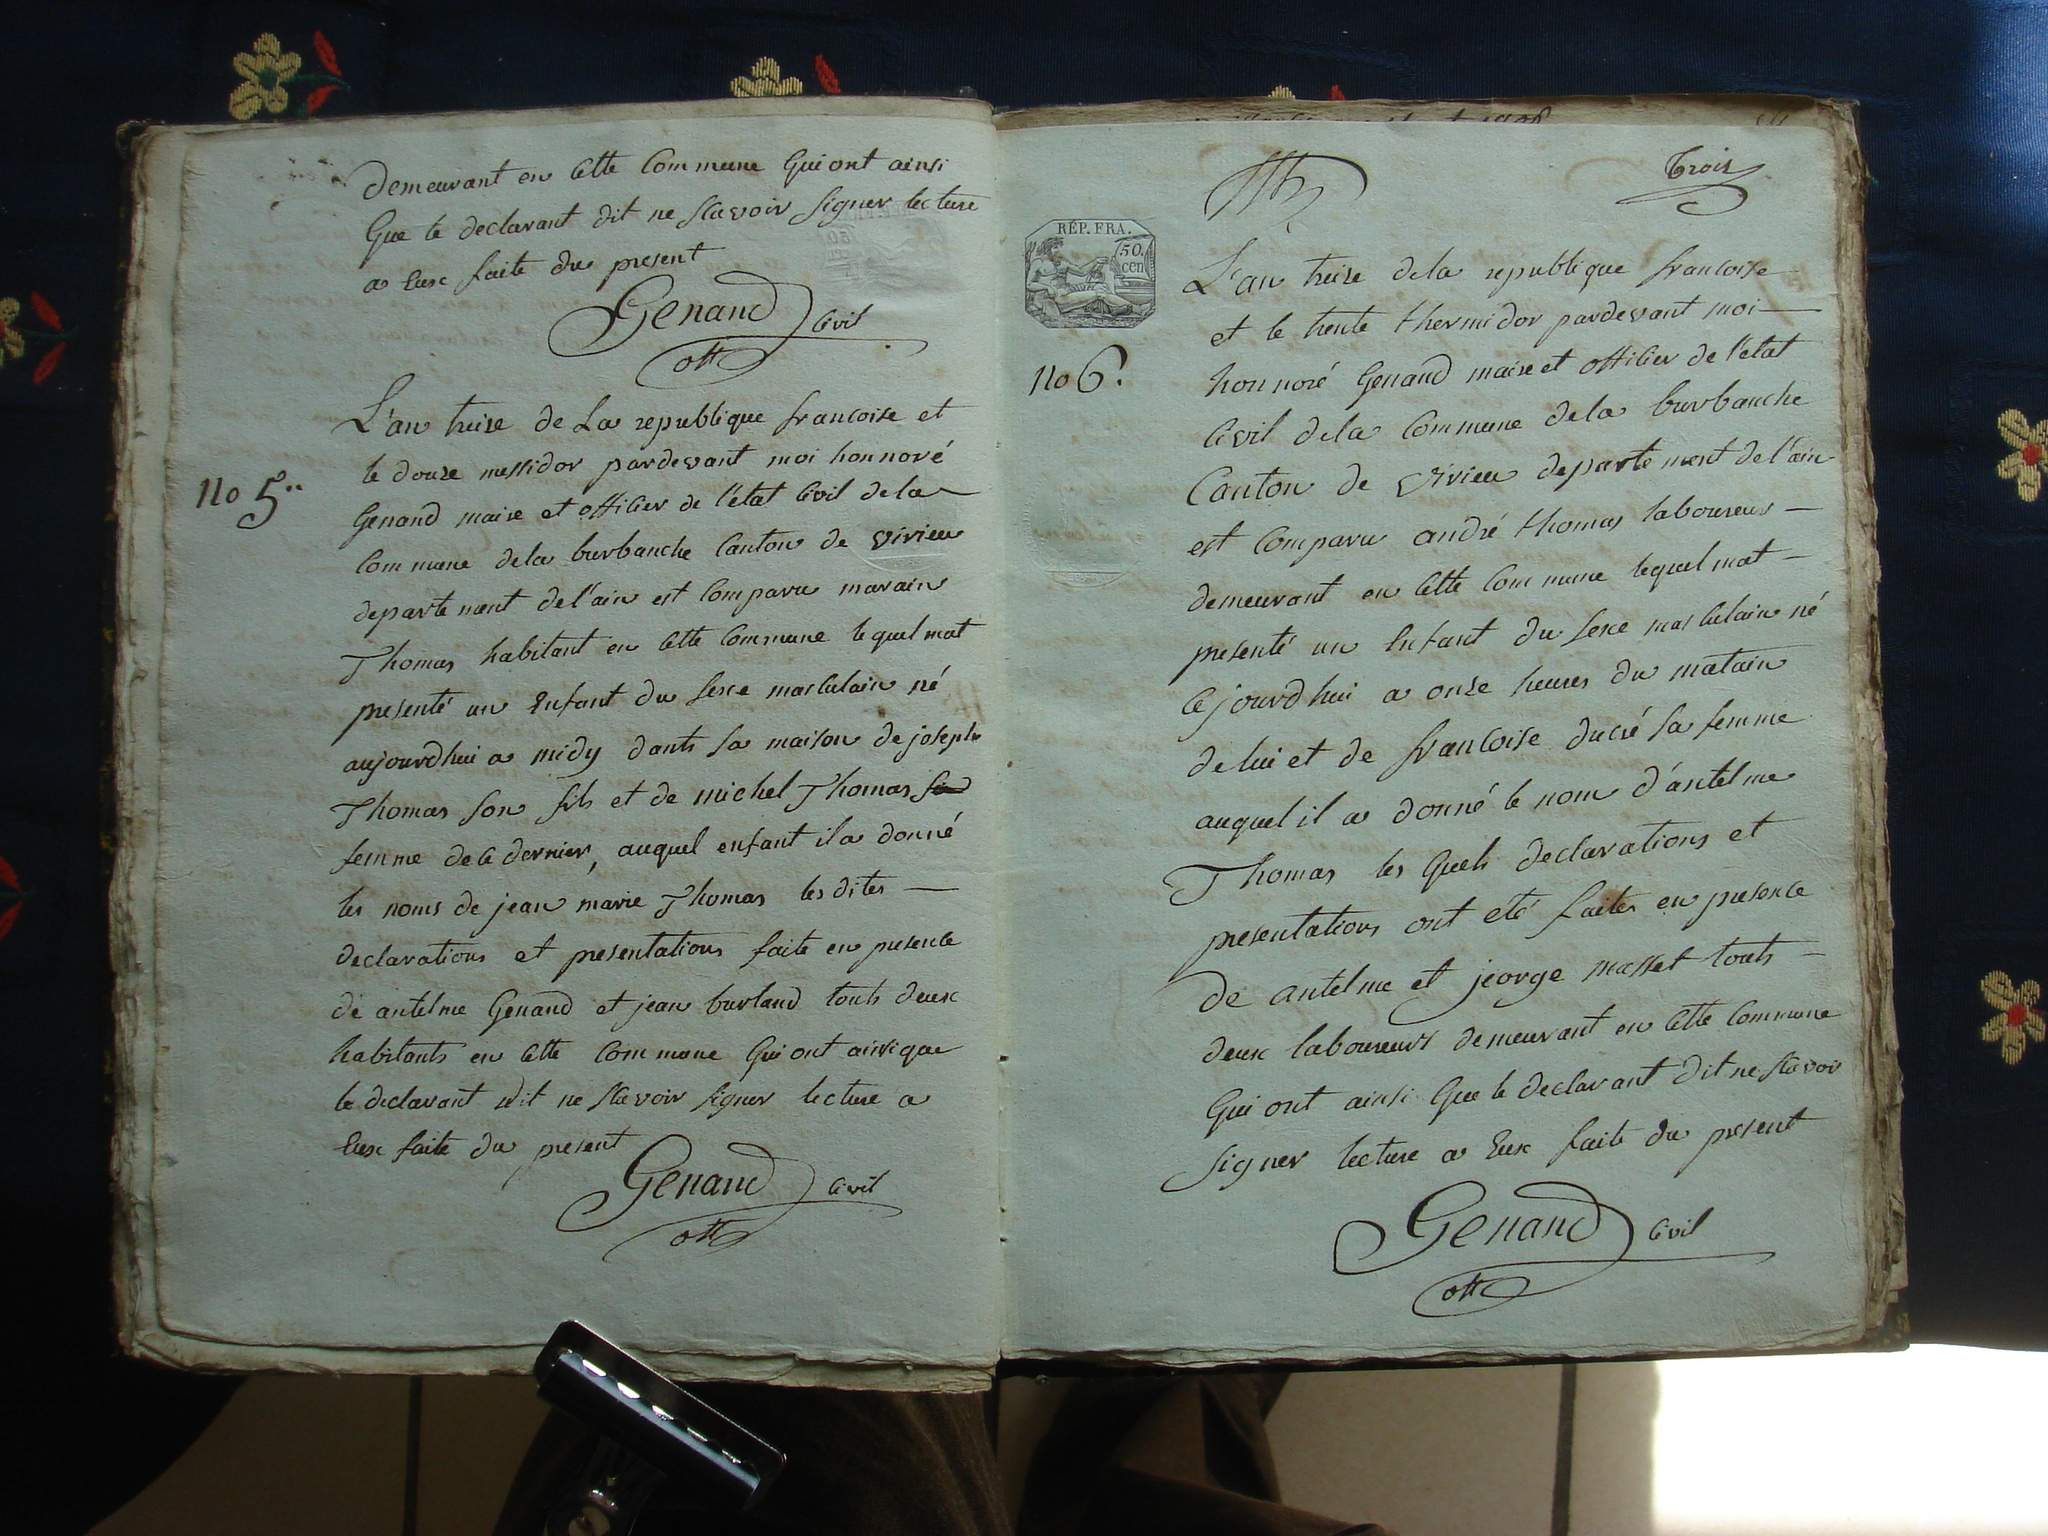 demeurant en Cette Commune Qui ont ainsi
Que le declarant dit ne Scavoir Signer lecture
a Eux faite du present
Genand Civil
off
No 5..
L'an treize de La republique francoise et
le douze messidor pardevant moi honnoré
Genand maire et officier de l'état Civil dela
Commune dela burbanche Canton de virieu
departement del'ain est Comparu marain
Thomas habitant en Cette Commune lequel mat
presenté un Enfant du Sexe masculain né
aujourdhui a midy dants sa maison de joseph
Thomas Son fils et de michel Thomas
femme de Ce dernier, auquel enfant il a donné
les noms de jean marie Thomas lesdites
declarations et presentations faite en presence
de antelme Genand et jean burland touts deux
habitants en Cette Commune Qui ont ainsi que
le declarant dit ne Scavoir Signer lecture a
Eux faite du present
Genand Civil
off
Trois
RÉP. FRA.
50.
cen
No 6.
L'an treize dela republique francoise
et le trente thermidor pardevant moi
honnoré Genand maire et officier de l'état
Civil dela Commune dela burbanche
Canton de virieu departement de l'ain
est Comparu andré thomas laboureur
demeurant en Cette Commune lequel mat
presenté un Enfant du Sexe masculain né
Cejourdhui a onze heures du matain
de lui et de francoise ducré sa femme
auquel il a donné le nom d'antelme
Thomas les Quels declarations et
presentations ont été faites en presence
de antelme et jeorge masset touts
deux laboureurs demeurant en Cette Commune
Qui ont ainsi Que le declarant dit ne Scavoir
Signer lecture a Eux faite du present
Genand Civil
off